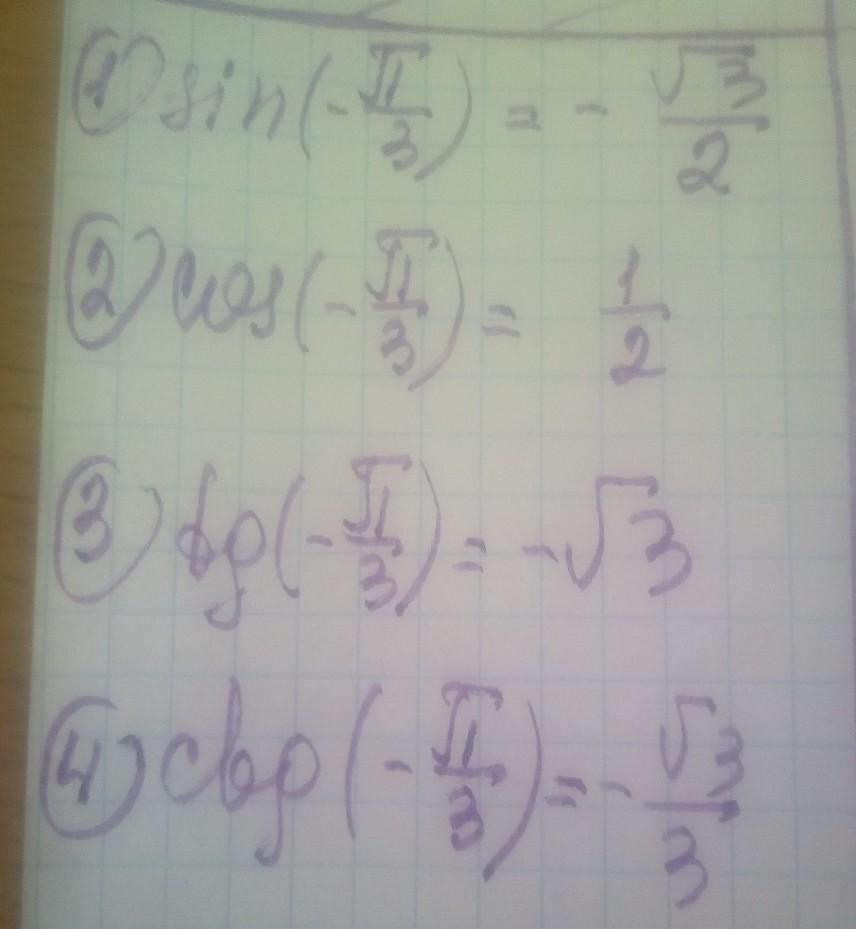 1) sin(-π/3) = - √3/2
2) cos(-π/3) = 1/2
3) tg(-π/3) = -√3
4) ctg(-π/3) = - √3/3